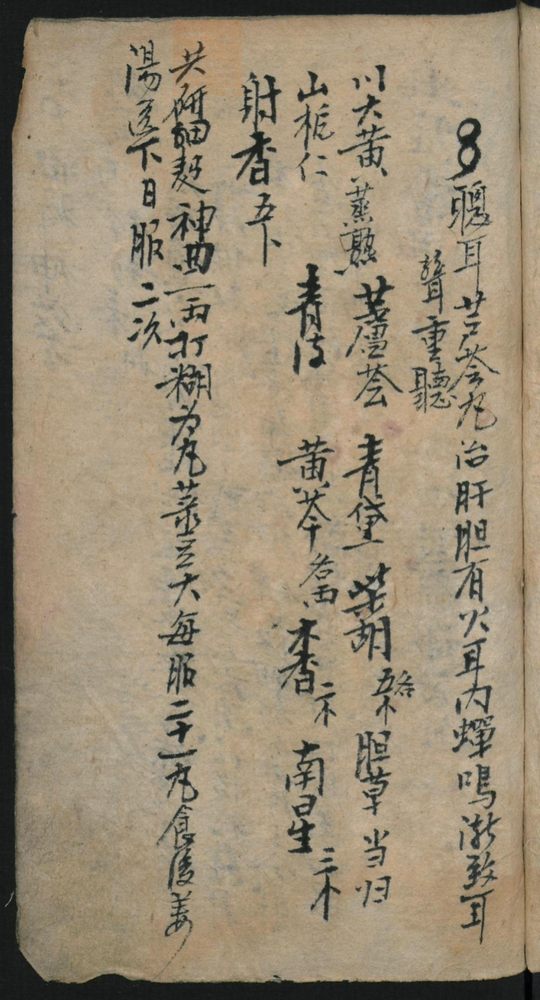 8 聰耳芦荟丸治肝胆有火耳内蟬鳴漸致耳
聾重聽
川大黄蒸熟 芦薈 青黛 柴胡各五卜 胆草 当归
山栀仁 青皮 黄芩各一両 木香二卜 南星三卜
射香五卜
共研細麪神曲一両打糊为丸菉豆大每服二十一丸食後姜
湯送下日服二次